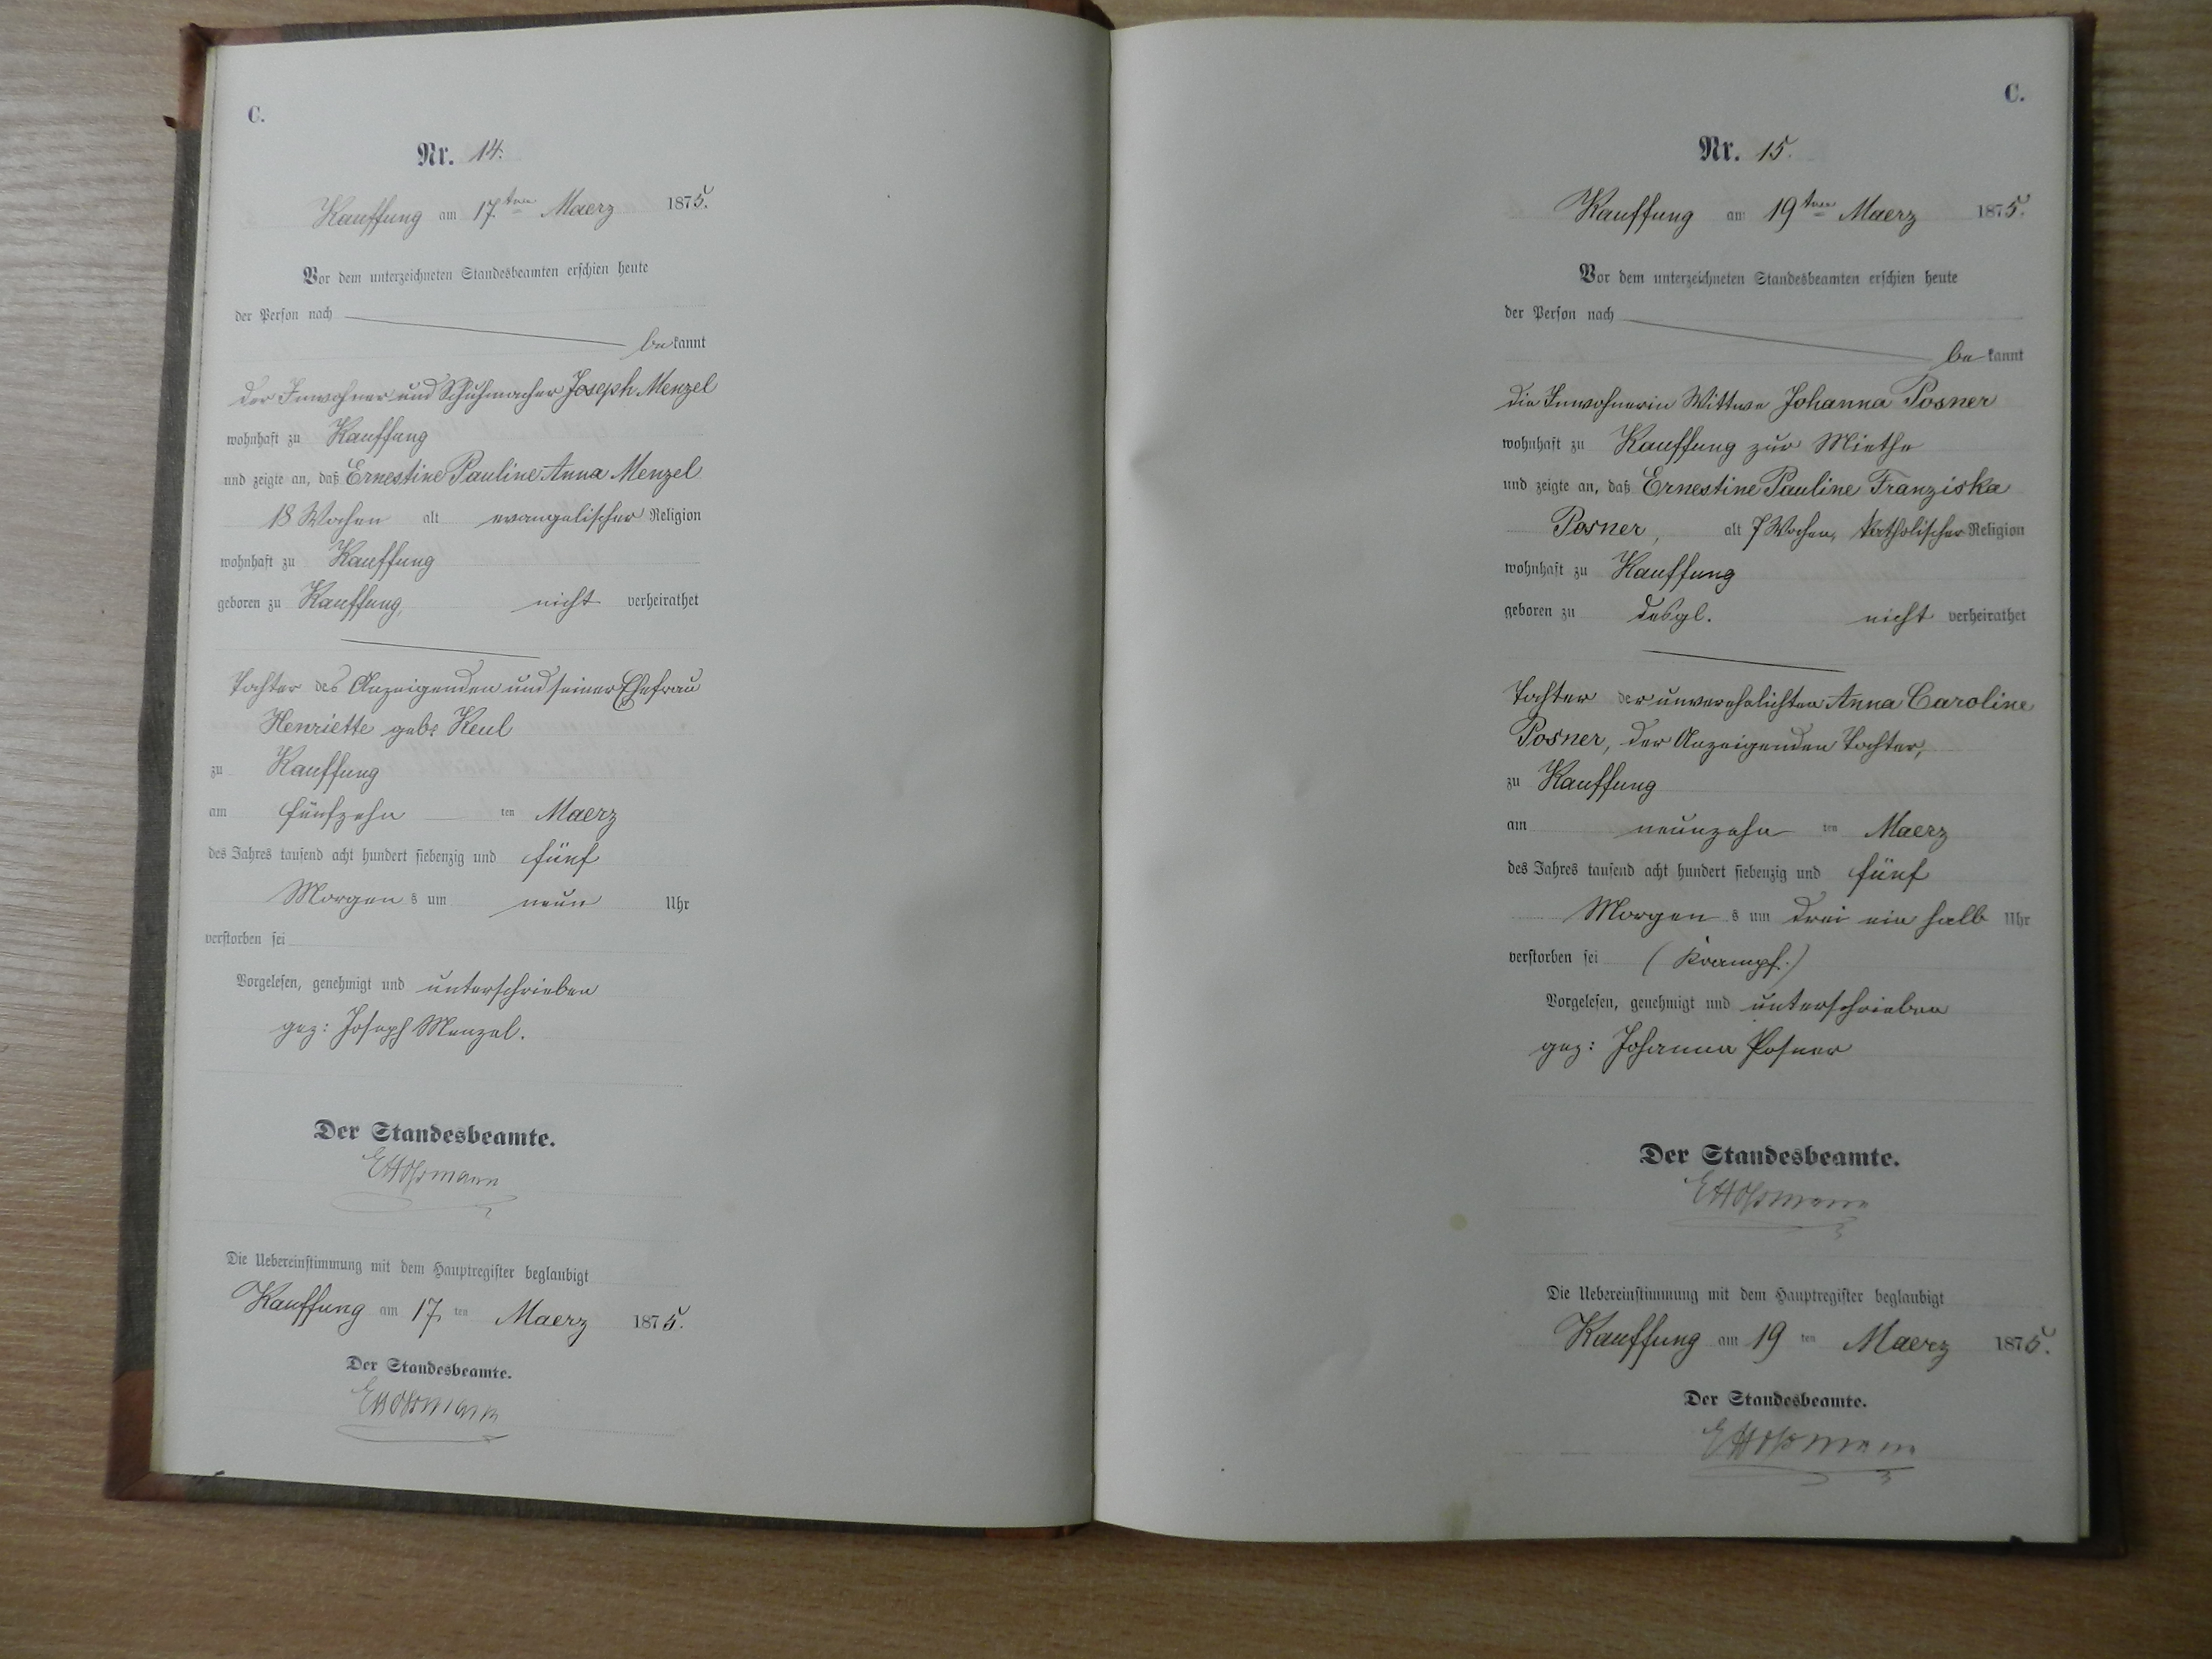 C.
Nr. 14.
Kauffung am 17.ten Maerz 1875.
Vor dem unterzeichneten Standesbeamten erschien heute
der Person nach
be kannt
der Inwohner und Schuhmacher Joseph Menzel
wohnhaft zu Kauffung
und zeigte an, daß Ernestine Pauline Anna Menzel
18 Wochen alt evangelischer Religion
wohnhaft zu Kauffung
geboren zu Kauffung, nicht verheirathet
Tochter des Anzeigenden und seiner Ehefrau
Henriette geb: Keul
zu Kauffung
am fünfzehn ten Maerz
des Jahres tausend acht hundert siebenzig und fünf
Morgen s um neun Uhr
verstorben sei
Vorgelesen, genehmigt und unterschrieben
gez: Joseph Menzel.
Der Standesbeamte.
Die Uebereinstimmung mit dem Hauptregister beglaubigt
Kauffung am 17. ten Maerz 1875.
Der Standesbeamte.
C.
Nr. 15.
Kauffung am 19ten Maerz 1875.
Vor dem unterzeichneten Standesbeamten erschien heute
der Person nach
be kannt
die Inwohnerin Wittwe Johanna Posner
wohnhaft zu Kauffung zur Miethe
und zeigte an, daß Ernestine Pauline Franziska
Posner, alt 7 Wochen, katholischer Religion
wohnhaft zu Kauffung
geboren zu desgl. nicht verheirathet
Tochter der unverehelichten Anna Caroline
Posner, der Anzeigenden Tochter,
zu Kauffung
am neunzehn ten Maerz
des Jahres tausend acht hundert siebenzig und fünf
Morgen s um drei ein halb Uhr
verstorben sei (Krampf.)
Vorgelesen, genehmigt und unterschrieben
gez: Johanna Posner
Der Standesbeamte.
Die Uebereinstimmung mit dem Hauptregister beglaubigt
Kauffung am 19 ten Maerz 1875.
Der Standesbeamte.